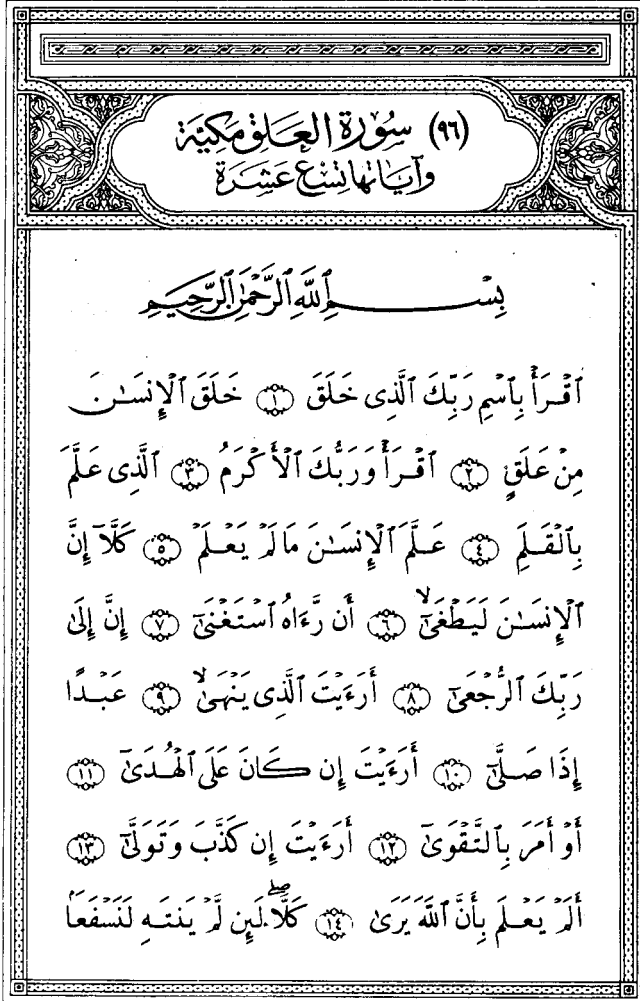 (٩٦) سُورَةُ العَلَقِ مَكِيَّة
وَآيَاتُهَا تِسْعَ عَشَرَة
بِسْمِ ٱللَّهِ ٱلرَّحْمَٰنِ ٱلرَّحِيمِ
ٱقْرَأْ بِٱسْمِ رَبِّكَ ٱلَّذِى خَلَقَ ١ خَلَقَ ٱلْإِنسَٰنَ
مِنْ عَلَقٍ ٢ ٱقْرَأْ وَرَبُّكَ ٱلْأَكْرَمُ ٣ ٱلَّذِى عَلَّمَ
بِٱلْقَلَمِ ٤ عَلَّمَ ٱلْإِنسَٰنَ مَا لَمْ يَعْلَمْ ٥ كَلَّآ إِنَّ
ٱلْإِنسَٰنَ لَيَطْغَىٰٓۙ ٦ أَن رَّءَاهُ ٱسْتَغْنَىٰٓ ٧ إِنَّ إِلَىٰ
رَبِّكَ ٱلرُّجْعَىٰٓ ٨ أَرَءَيْتَ ٱلَّذِى يَنْهَىٰۙ ٩ عَبْدًا
إِذَا صَلَّىٰٓ ١٠ أَرَءَيْتَ إِن كَانَ عَلَى ٱلْهُدَىٰٓ ١١
أَوْ أَمَرَ بِٱلتَّقْوَىٰٓ ١٢ أَرَءَيْتَ إِن كَذَّبَ وَتَوَلَّىٰٓ ١٣
أَلَمْ يَعْلَم بِأَنَّ ٱللَّهَ يَرَىٰ ١٤ كَلَّاۖ لَئِن لَّمْ يَنتَهِ لَنَسْفَعَۢا